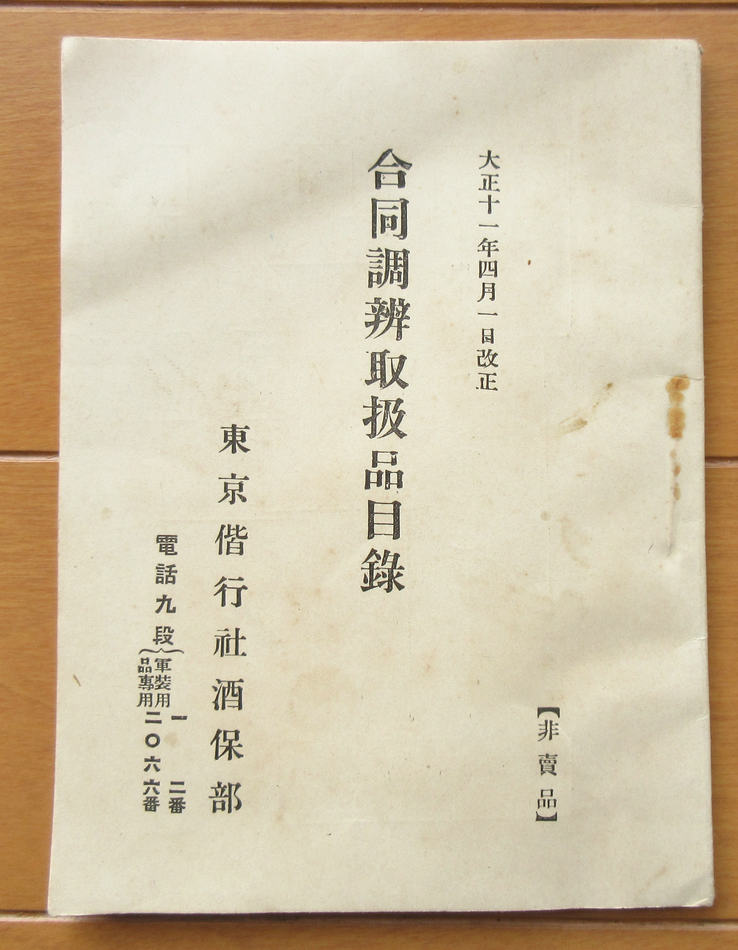 【非賣品】
大正十一年四月一日改正
合同調辨取扱品目錄
東京偕行社酒保部
電話九段
一二番
軍裝用
品專用
二〇六六番